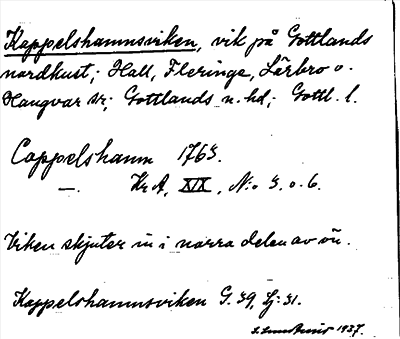 Kappelshamnsviken, vik på Gottlands
nordkust; Hall, Fleringe, Lärbro o.
Hangvar sr; Gottlands n. hd; Gottl. l.
Cappelshamn 1763.
—. Kr A, XIX, N:o 3. o. 6.
Viken skjuter in i norra delen av ön.
Kappelshamnsviken G. 39, Lj: 31.
1937.